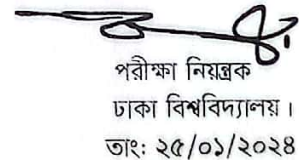 পরীক্ষা নিয়ন্ত্রক
ঢাকা বিশ্ববিদ্যালয়।
তাং: ২৫/০১/২০২৪